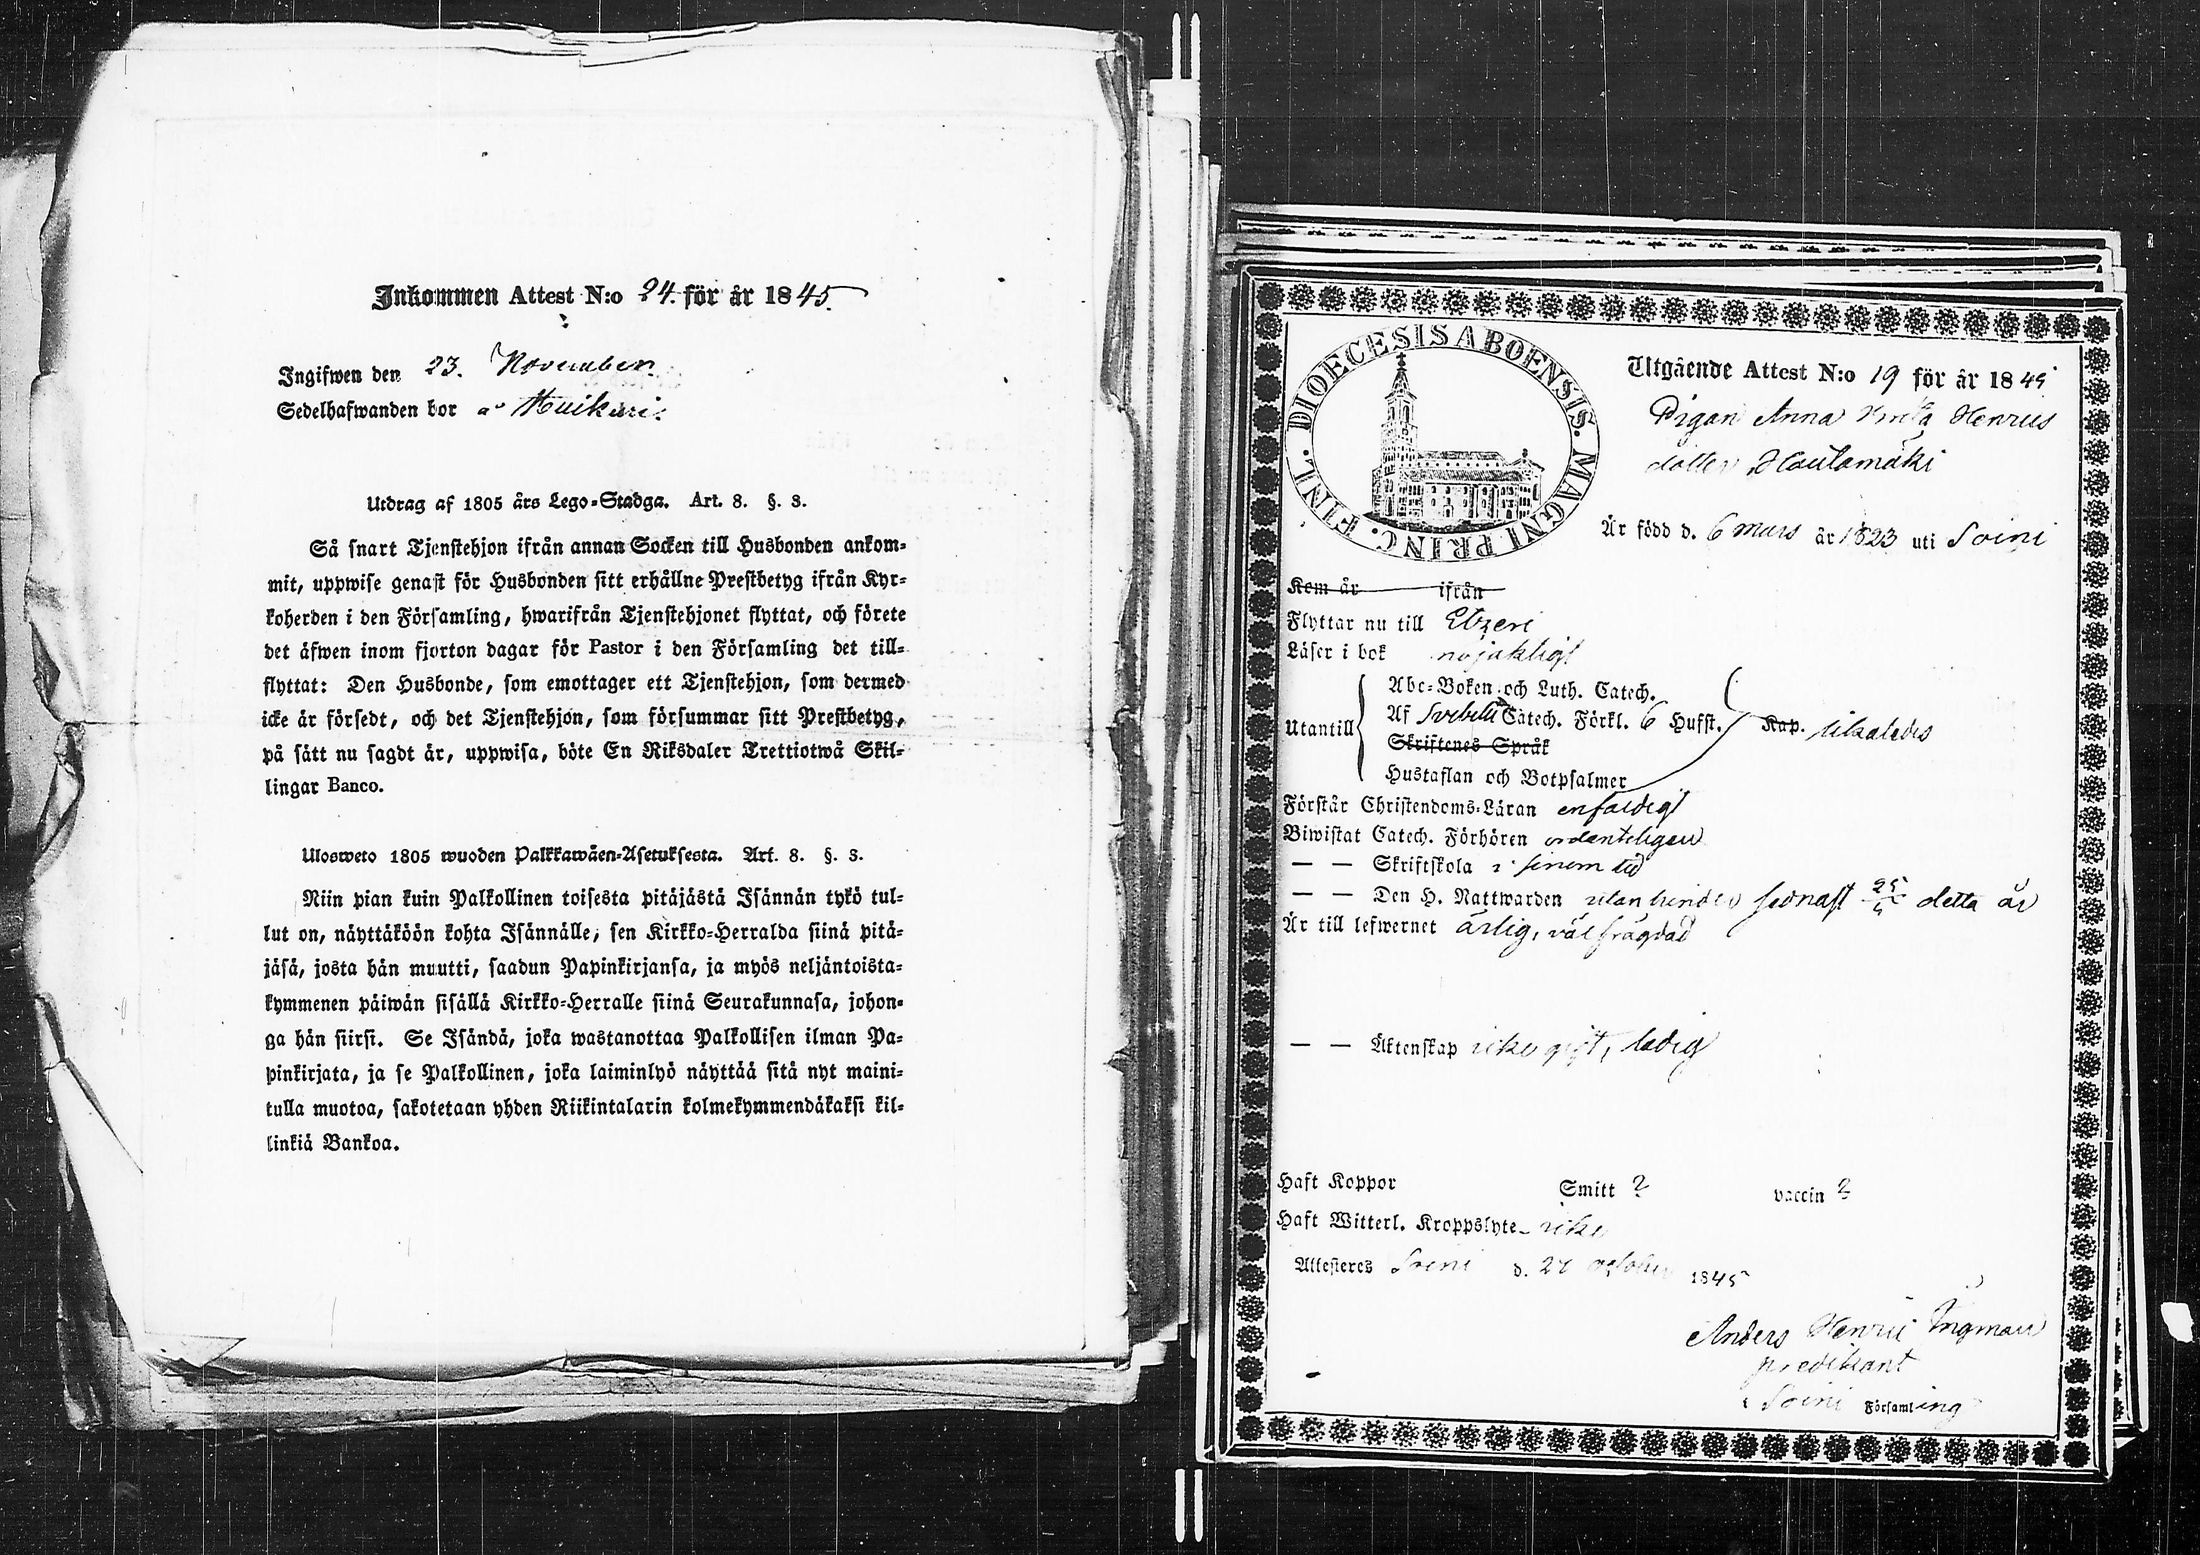 Inkommen Attest N:o 24 för år 1845.
Ingifwen den 23. November.
Sedelhafwanden bor
Utdrag af 1805 års Lego-Stadga. Art. 8. §. 3.
Så snart Tjenstehjon ifrån annan Socken till Husbonden ankom-
mit, uppwise genast för Husbonden sitt erhållne Prestbetyg ifrån Kyr-
koherden i den Församling, hwarifrån Tjenstehjonet flyttat, och förete
det äfwen inom fjorton dagar för Pastor i den Församling det till-
flyttat: Den Husbonde, som emottager ett Tjenstehjon, som dermed
icke är försedt, och det Tjenstehjon, som försummar sitt Prestbetyg,
på sätt nu sagdt är, uppwisa, böte En Riksdaler Trettiotwå Skil-
lingar Banco.
Ulosweto 1805 wuoden Palkkawäen-Asetuksesta. Art. 8. §. 3.
Niin pian kuin Palkollinen toisesta pitäjästä Isännän tykö tul-
lut on, näyttäköön kohta Isännälle, sen Kirkko-Herralda siinä pitä-
jäsä, josta hän muutti, saadun Papinkirjansa, ja myös neljäntoista-
kymmenen päiwän sisällä Kirkko-Herralle siinä Seurakunnasa, johon-
ga hän siirsi. Se Isändä, joka wastanottaa Palkollisen ilman Pa-
pinkirjata, ja se Palkollinen, joka laiminlyö näyttää sitä nyt maini-
tulla muotoa, sakotetaan yhden Riikintalarin kolmekymmendäkaksi kil-
linkiä Bankoa.
DIOECESIS ABOENSIS. MAGNI PRINC. FINL.
Utgående Attest N:o 19 för år 1845
Pigan Anna Henrics
dotter Hautamäki
Är född d. 6 mars år 1823 uti Soini
Kom år ifrån
Flyttar nu till Etzeri
Läser i bok nöjaktligt
Abc-Boken och Luth. Catech.
Utantill Af Svebelii Catech. Förkl. 6 Hufst. Kap. likaledes
Skriftenes Språk
Hustaflan och Botpsalmer
Förstår Christendoms-Läran enfaldigt
Biwistat Catech. Förhören ordenteligen
— — Skriftskola i sinom tid
— — Den H. Nattwarden utan hinder sednast 25/ detta år
Är till lefwernet ärlig, väl frägdad
— — Äktenskap icke gift, ledig
Haft Koppor Smitt ? vaccin ?
Haft Witterl. Kroppslyte icke
Attesteres Soini d. 27 october 1845
Anders Henric Ingman
predikant
i Soini Församling